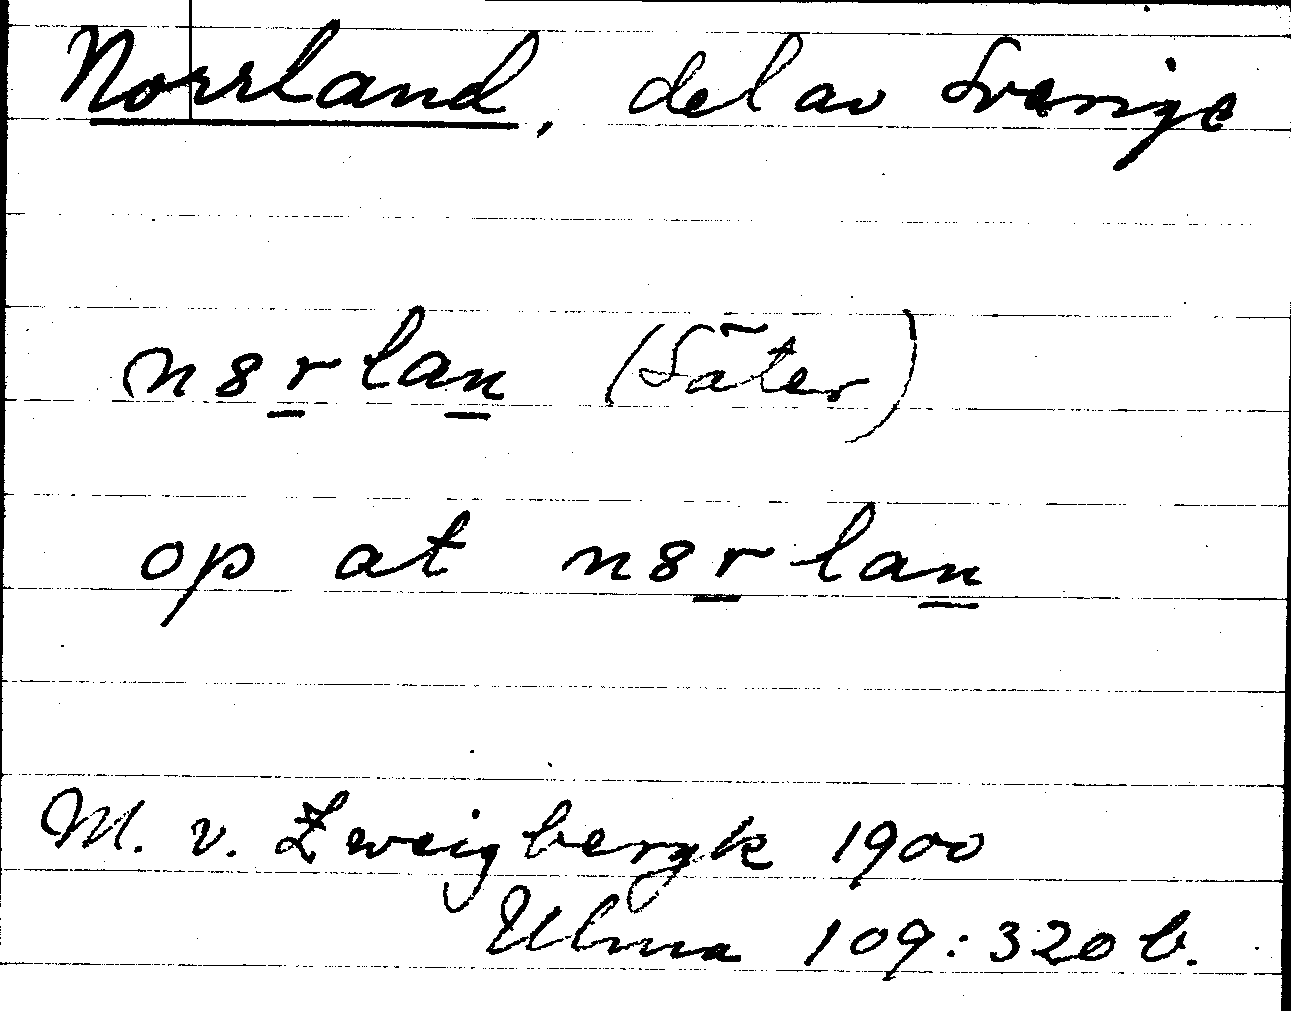 Norrland, del av Sverige
n8r̲lan̲ (Säter)
op at n8r̲lan̲
M. v. Zweigbergk 1900
Ulma 109:320 b.